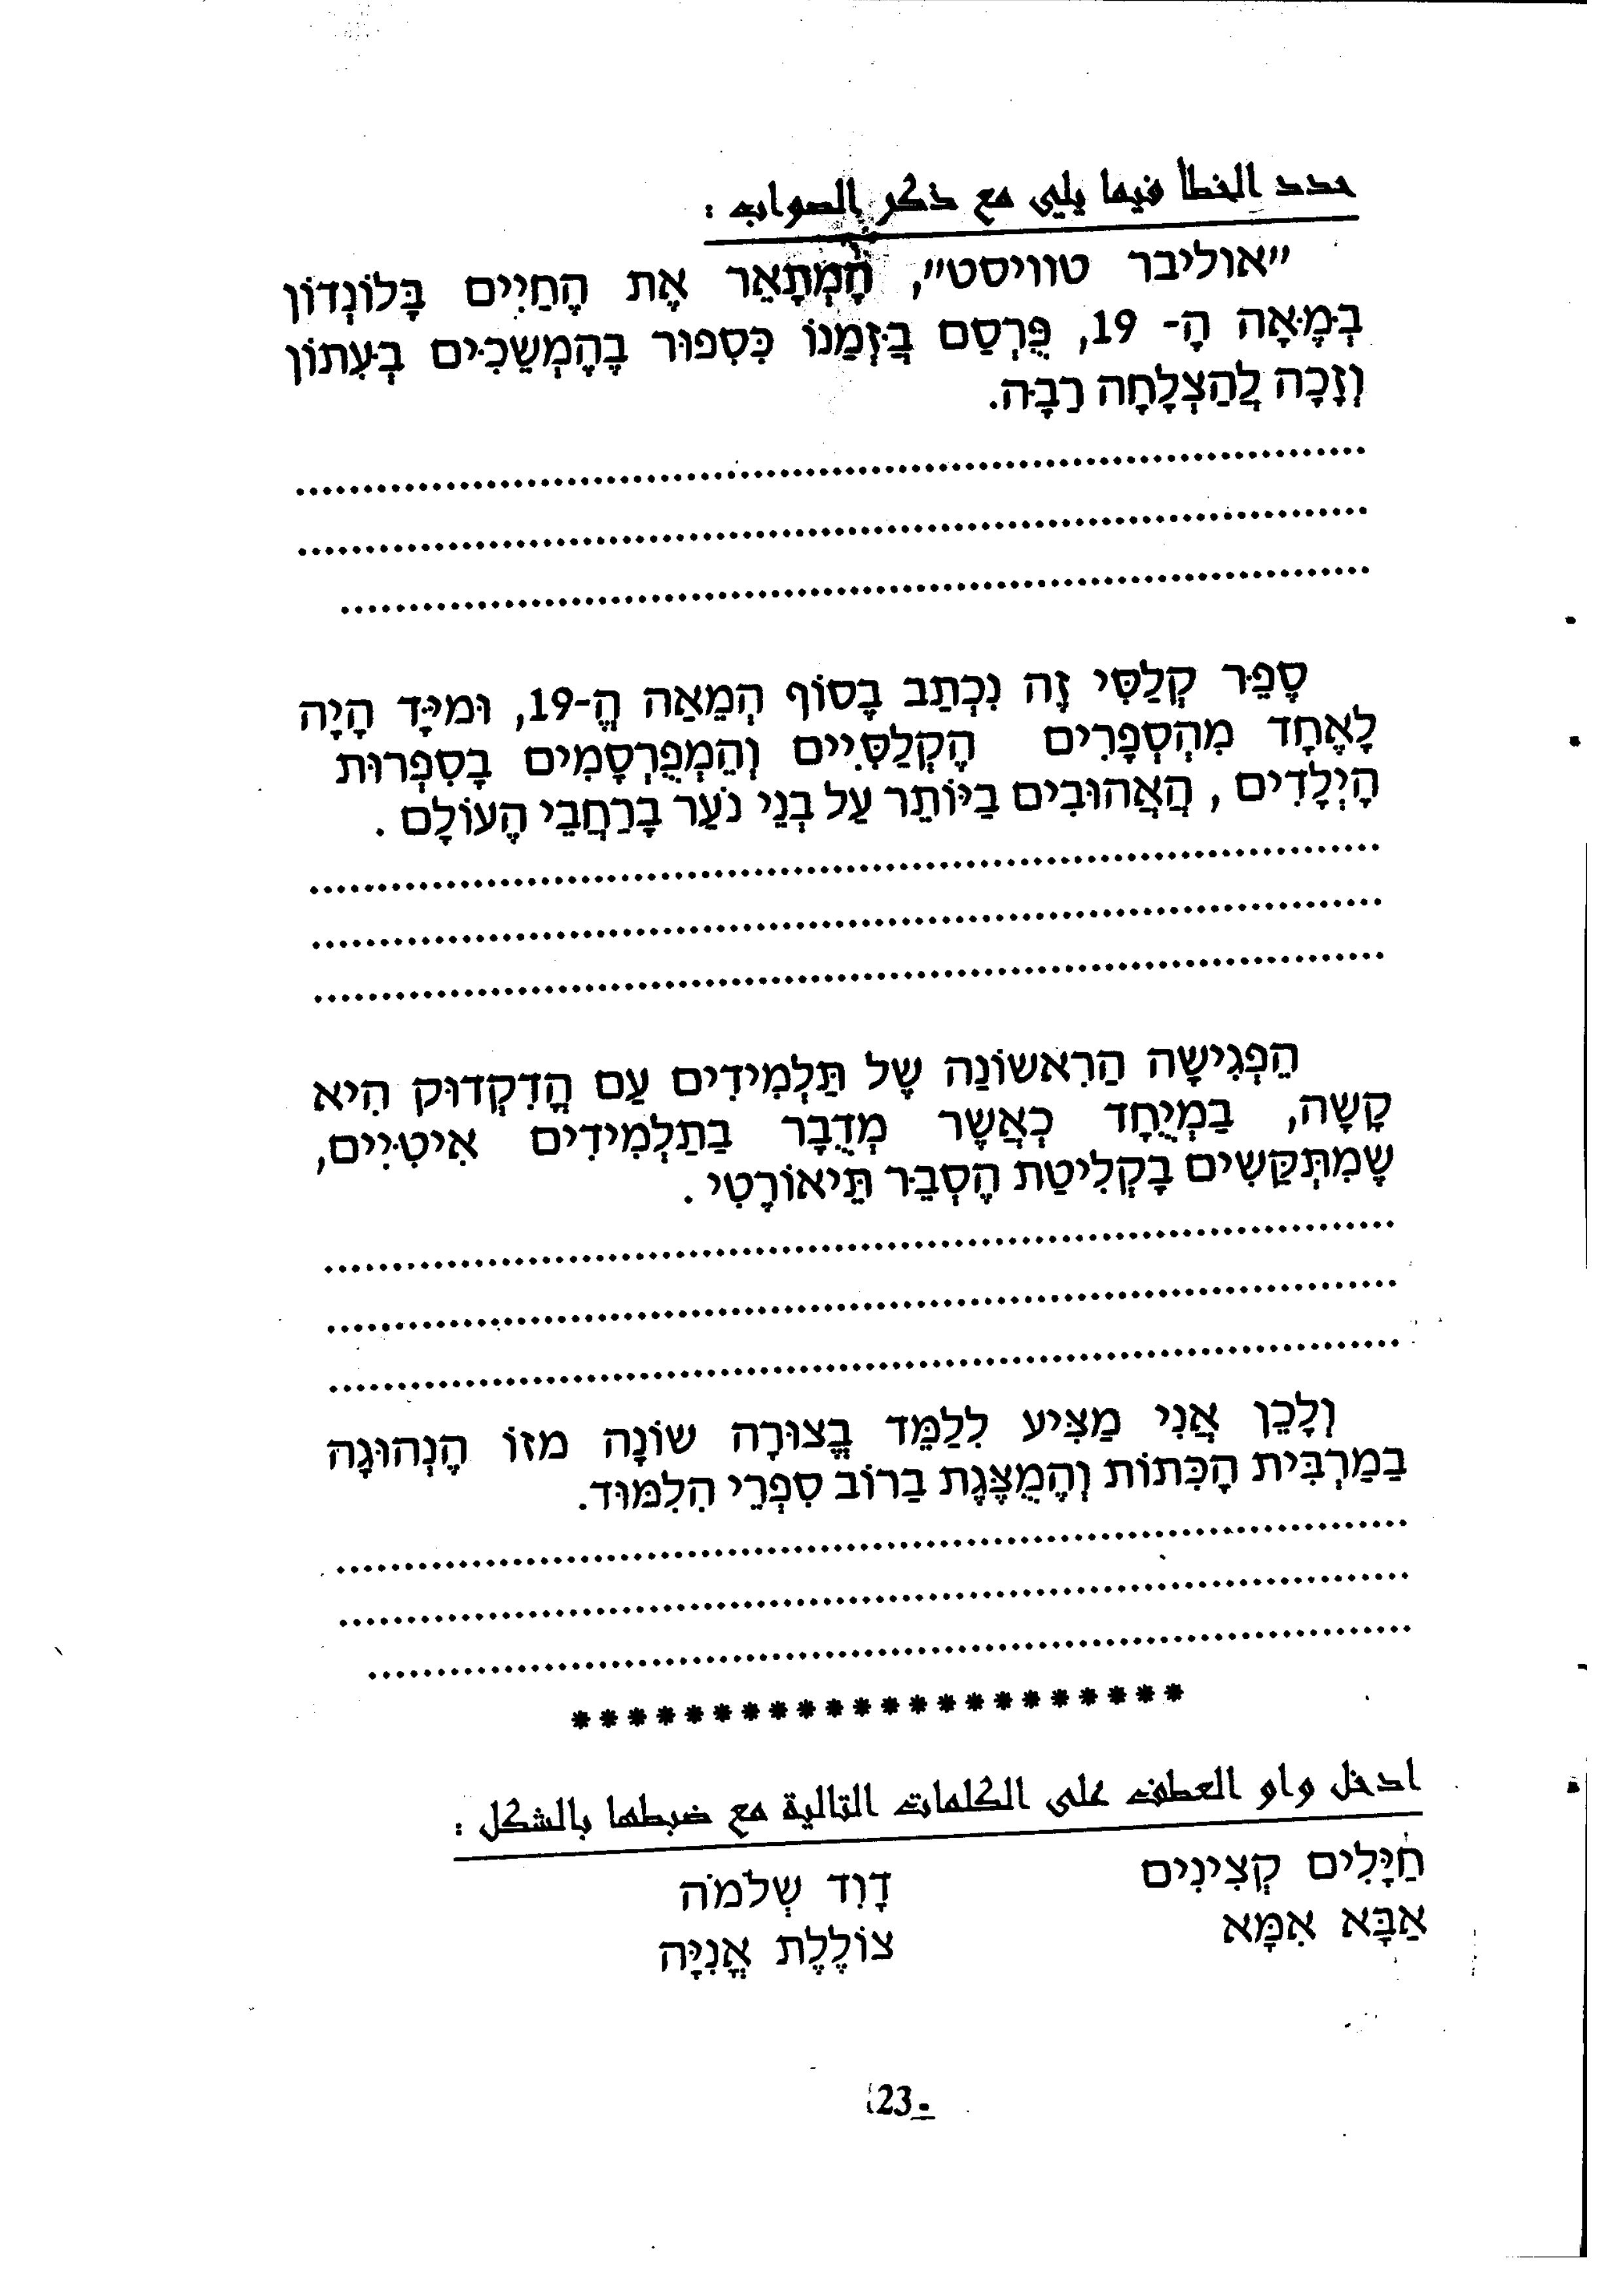 حدد الخطأ فيما يلى مع ذكر الصواب :
"אוליבר טוויסט", הָמְתָאֵר אֶת הֶחַיִים בָּלוֹנְדוֹן
בְּמֶאָה הָ- 19, פֻּרְסַם בֲּזְמַנוֹ כְּסִפּוּר בֶהֶמְשֵׁכִים בְּעִתוֹן
וְזָכָה לֲהַצְלָחָה רַבָּה.
סֶפֵר קְלַסִּי זֶה נִכְתַב בָּסוֹף הְמֵאַה הֱ-19, וּמִיָּד הָיָה
לָאֶחָד מִהְסְפָרִים הֶקְלַסִּיִים וְהֵמְפֻרְסָמִים בָסִפְרוּת
הָיְלָדִים , הֲאֲהוּבִים בַּיּוֹתֵר עַל בְּנֵי נֹעַר בָרַחֲבֵי הֶעוֹלָם .
הֵפְגִישָה הַרִאשׁוֹנַה שֶל תַּלְמִידִים עַם הֳדִקְדוּק הִיא
קָשָה, בַּמְיֻחָד כְּאֲשֶר מְדֻבָר בַתַלְמִידִים אִיטִיִים,
שֶמִתְקַשִים בָקְלִיטַת הֶסְבֵּר תֵּיאוֹרֶטִי .
וְלָכֵן אֲנִי מַצִּיע לְלַמֵּד בֱּצוּרָה שׁוֹנָה מזוֹ הֶנְהוּגָה
בַמַרְבִּית הָכִּתוֹת וְהֶמֻצֶּגֶת בַרוֹב סִפְרֵי הִלִמּוּד.
* * * * * * * * * * * * * * * * * * * * * *
ادخل واو العطف على الكلمات التالية مع ضبطها بالشكل :
חַיָּלִים קְצִינִים דָוִד שְׁלֹמֹה
אַבָּא אִמָּא צוֹלֶלֶת אֳנִיָּה
23